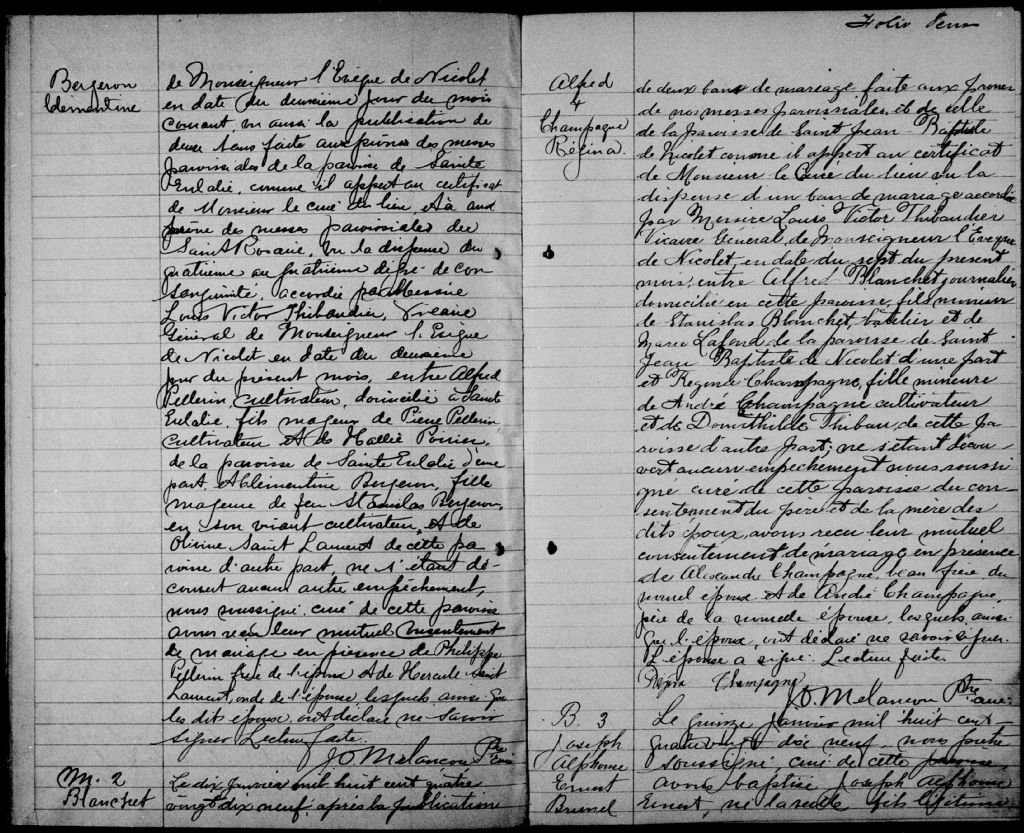 Bergeron
Clementine
de Monseigneur l'Evêque de Nicolet
en date du deuxième jour du mois
courant, vu aussi la publication de
deux bans faite aux prônes des messes
paroissiales de la paroisse de Sainte
Eulalie, comme il appert au certificat
de Monsieur le curé du lieu, et à aux
prône des messes paroissiales du
Saint Rosaire, vu la dispense du
quatrième au quatrième degré de con
sanguinité, accordée par Messire
Louis Victor Thibaudier, Vicaire
Général de Monseigneur l'Evêque
de Nicolet en date du deuxième
jour du présent mois, entre Alfred
Pellerin, cultivateur, domicilié à Sainte
Eulalie, fils majeur de Pierre Pellerin
cultivateur et de Poirier,
de la paroisse de Sainte Eulalie d'une
part, et Clémentine Bergeron, fille
majeure de feu Stanislas Bergeron,
en son vivant cultivateur, et de
Olivine Saint Laurent de cette pa
roisse d'autre part, ne s'étant dé-
couvert aucun autre empêchement,
nous soussigné curé de cette paroisse
avons reçu leur mutuel consentement
de mariage en présence de Philippe
Pellerin frère de l'époux et de Hercule Saint
Laurent, oncle de l'épouse lesquels ainsi que
les dit épouse, ont déclaré ne savoir
signer Lecture faite.
J O Melancon Ptre
Curé
M. 2
Blanchet
Le dix Janvier mil huit cent quatre
vingt dix neuf, après la publication
Folio
Alfred
&
Champagne
Régina.
de deux bans de mariage faite aux prones
de nos messes paroissiales, et de celle
de la paroisse de Saint Jean-Baptiste
de Nicolet comme il appert au certificat
de Monsieur le Curé du lieu vu la
dispense d'un ban de mariage accordée
par Messire Louis Victor Thibaudier
Vicaire Général de Monseigneur l'Evêque
de Nicolet, en date du sept du présent
mois, entre Alfred Blanchet journalier,
domicilié en cette paroisse, fils mineur
de Stanislas Blanchet, batelier et de
Marie Lafond de la paroisse de Saint
Jean Baptiste de Nicolet d'une part
et Régina Champagne, fille mineure
de André Champagne cultivateur
et de Domithilde Thibau, de cette pa
roisse d'autre part; ne s'étant décou
vert aucun empêchement nous soussi
gné curé de cette paroisse du con
sentement du père et de la mère des
dits époux, avons reçu leur mutuel
consentement de mariage en présence
de Alexandre Champagne, beau frère du
nouvel époux et de André Champagne,
père de la nouvelle épouse, lesquels ainsi
que l'époux, ont déclaré ne savoir signer.
L'épouse a signé. Lecture faite.
Régina Champagne
J O. Melancon Ptre
Curé
B. 3
Joseph
Alphonse
Ernest
Brunel
Le quinze Janvier mil huit cent
quatre vingt dix neuf, nous prêtre
soussigné curé de cette paroisse
avons baptisé Joseph Alphonse
Ernest, né la veille fils légitime